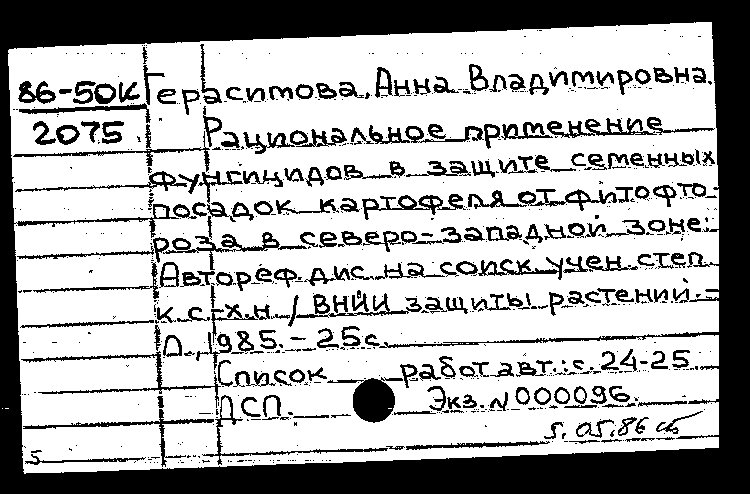 86-50К Герасимова, Анна Владимировна.
2075 Рациональное применение
фунгицидов в защите семенных
посадок картофеля от фитофто-
роза в северо-западной зоне:
Автореф. дис. на соиск. учен. степ.
к. с.-х. н. / ВНИИ защиты растений. –
Л., 1985. – 25 с.
Список работ авт.: с. 24-25
ДСП. Экз. N 000096.
5.05.86
5